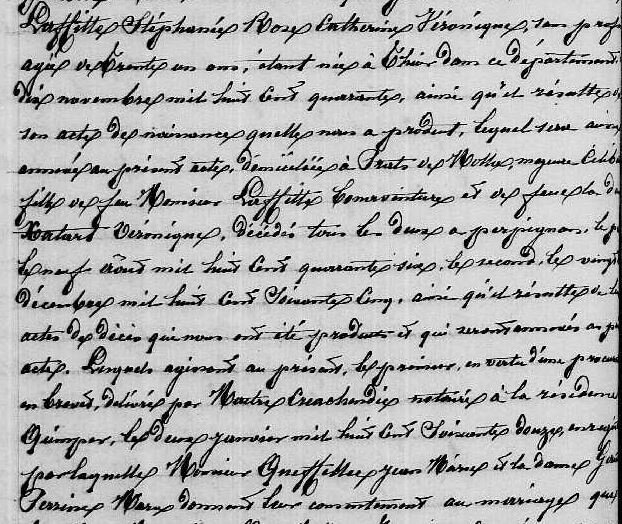 Laffitte Stéphanie Rose Catherine Véronique, sans prof
agée de Trente un ans, étant née à Thuir dans ce département
dix novembre mil huit Cent quarante, ainsi qu'il résulte
son acte de naissance quelle nous a produit, lequel sera
annexé au présent acte, domiciliée à Prats de Mollo, majeure Celib
fille de feu Monsieur Laffitte Bonaventure et de feue la
Xatard Véronique, décédés tous les deux a perpignan, le
le neuf août mil huit Cent quarante six, le second, le vingt
décembre mil huit Cent Soixante Cinq, ainsi qu'il résulte de
actes de décès qui nous ont été produits et qui seront annexés au
acte. Lesquels agissant au présent, le premier, en vertu d'une procu
en brevet, delivrée par Maitre notaire à la résidence
Quimper, le deux janvier mil huit Cent Soixante douze,
par laquelle Monsieur Queffellec Jean Marie et la dame
Perrine Marie donnent leur consentement au marriage que